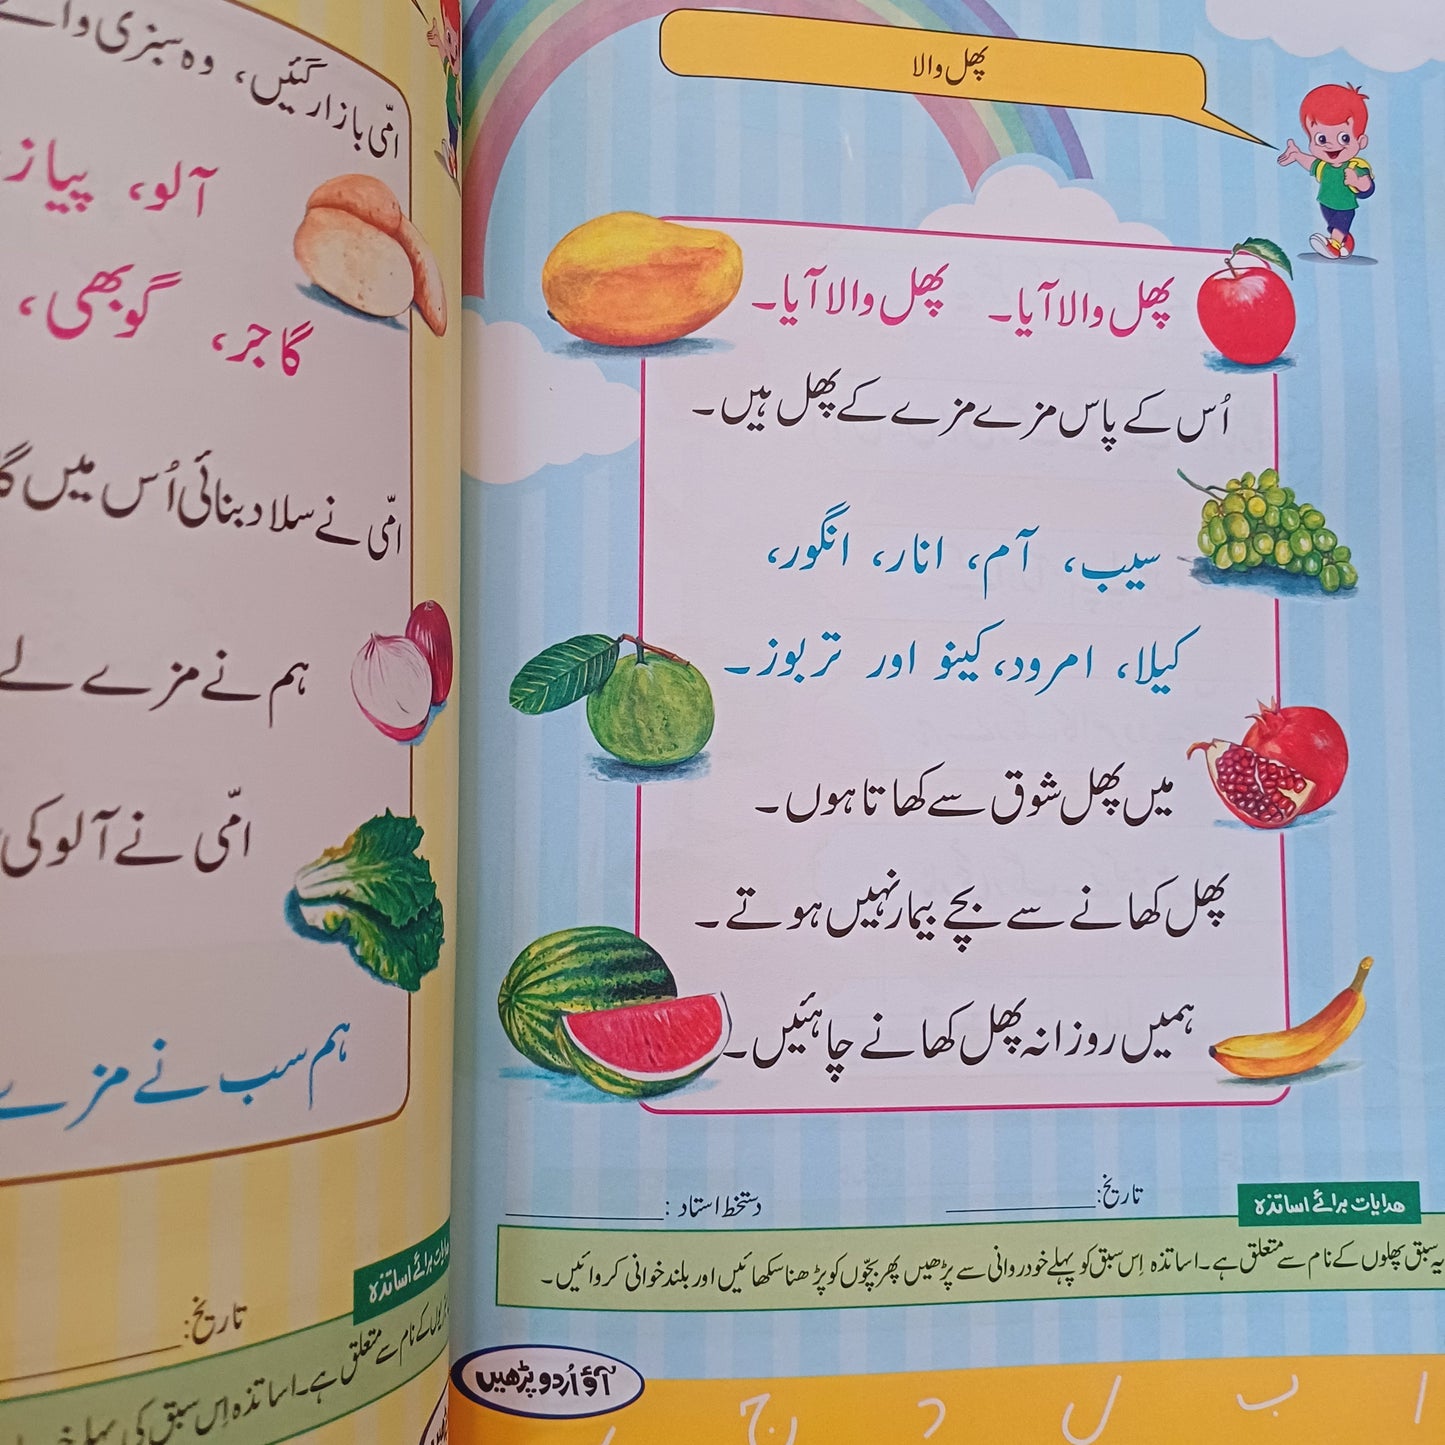 پھل والا
پھل والا آیا۔ پھل والا آیا۔
اُس کے پاس مزے مزے کے پھل ہیں۔
سیب، آم، انار، انگور،
کیلا، امرود، کینو اور تربوز۔
میں پھل شوق سے کھاتا ہوں۔
پھل کھانے سے بچے بیمار نہیں ہوتے۔
ہمیں روزانہ پھل کھانے چاہئیں۔
تاریخ: دستخط استاد :
ہدایات برائے اساتذہ
یہ سبق پھلوں کے نام سے متعلق ہے۔ اساتذہ اِس سبق کو پہلے خود روانی سے پڑھیں پھر بچّوں کو پڑھنا سکھائیں اور بلند خوانی کروائیں۔
آؤ اُردو پڑھیں
ا ب ل د ج
امّی بازار گئیں، وہ سبزی والے
آلو، پیاز
گاجر، گوبھی،
امّی نے سلاد بنائی اُس میں
ہم نے مزے لے
امّی نے آلو کی
ہم سب نے مزے
ہدایات برائے اساتذہ
تاریخ:
کے نام سے متعلق ہے۔ اساتذہ اِس سبق کی پہلے